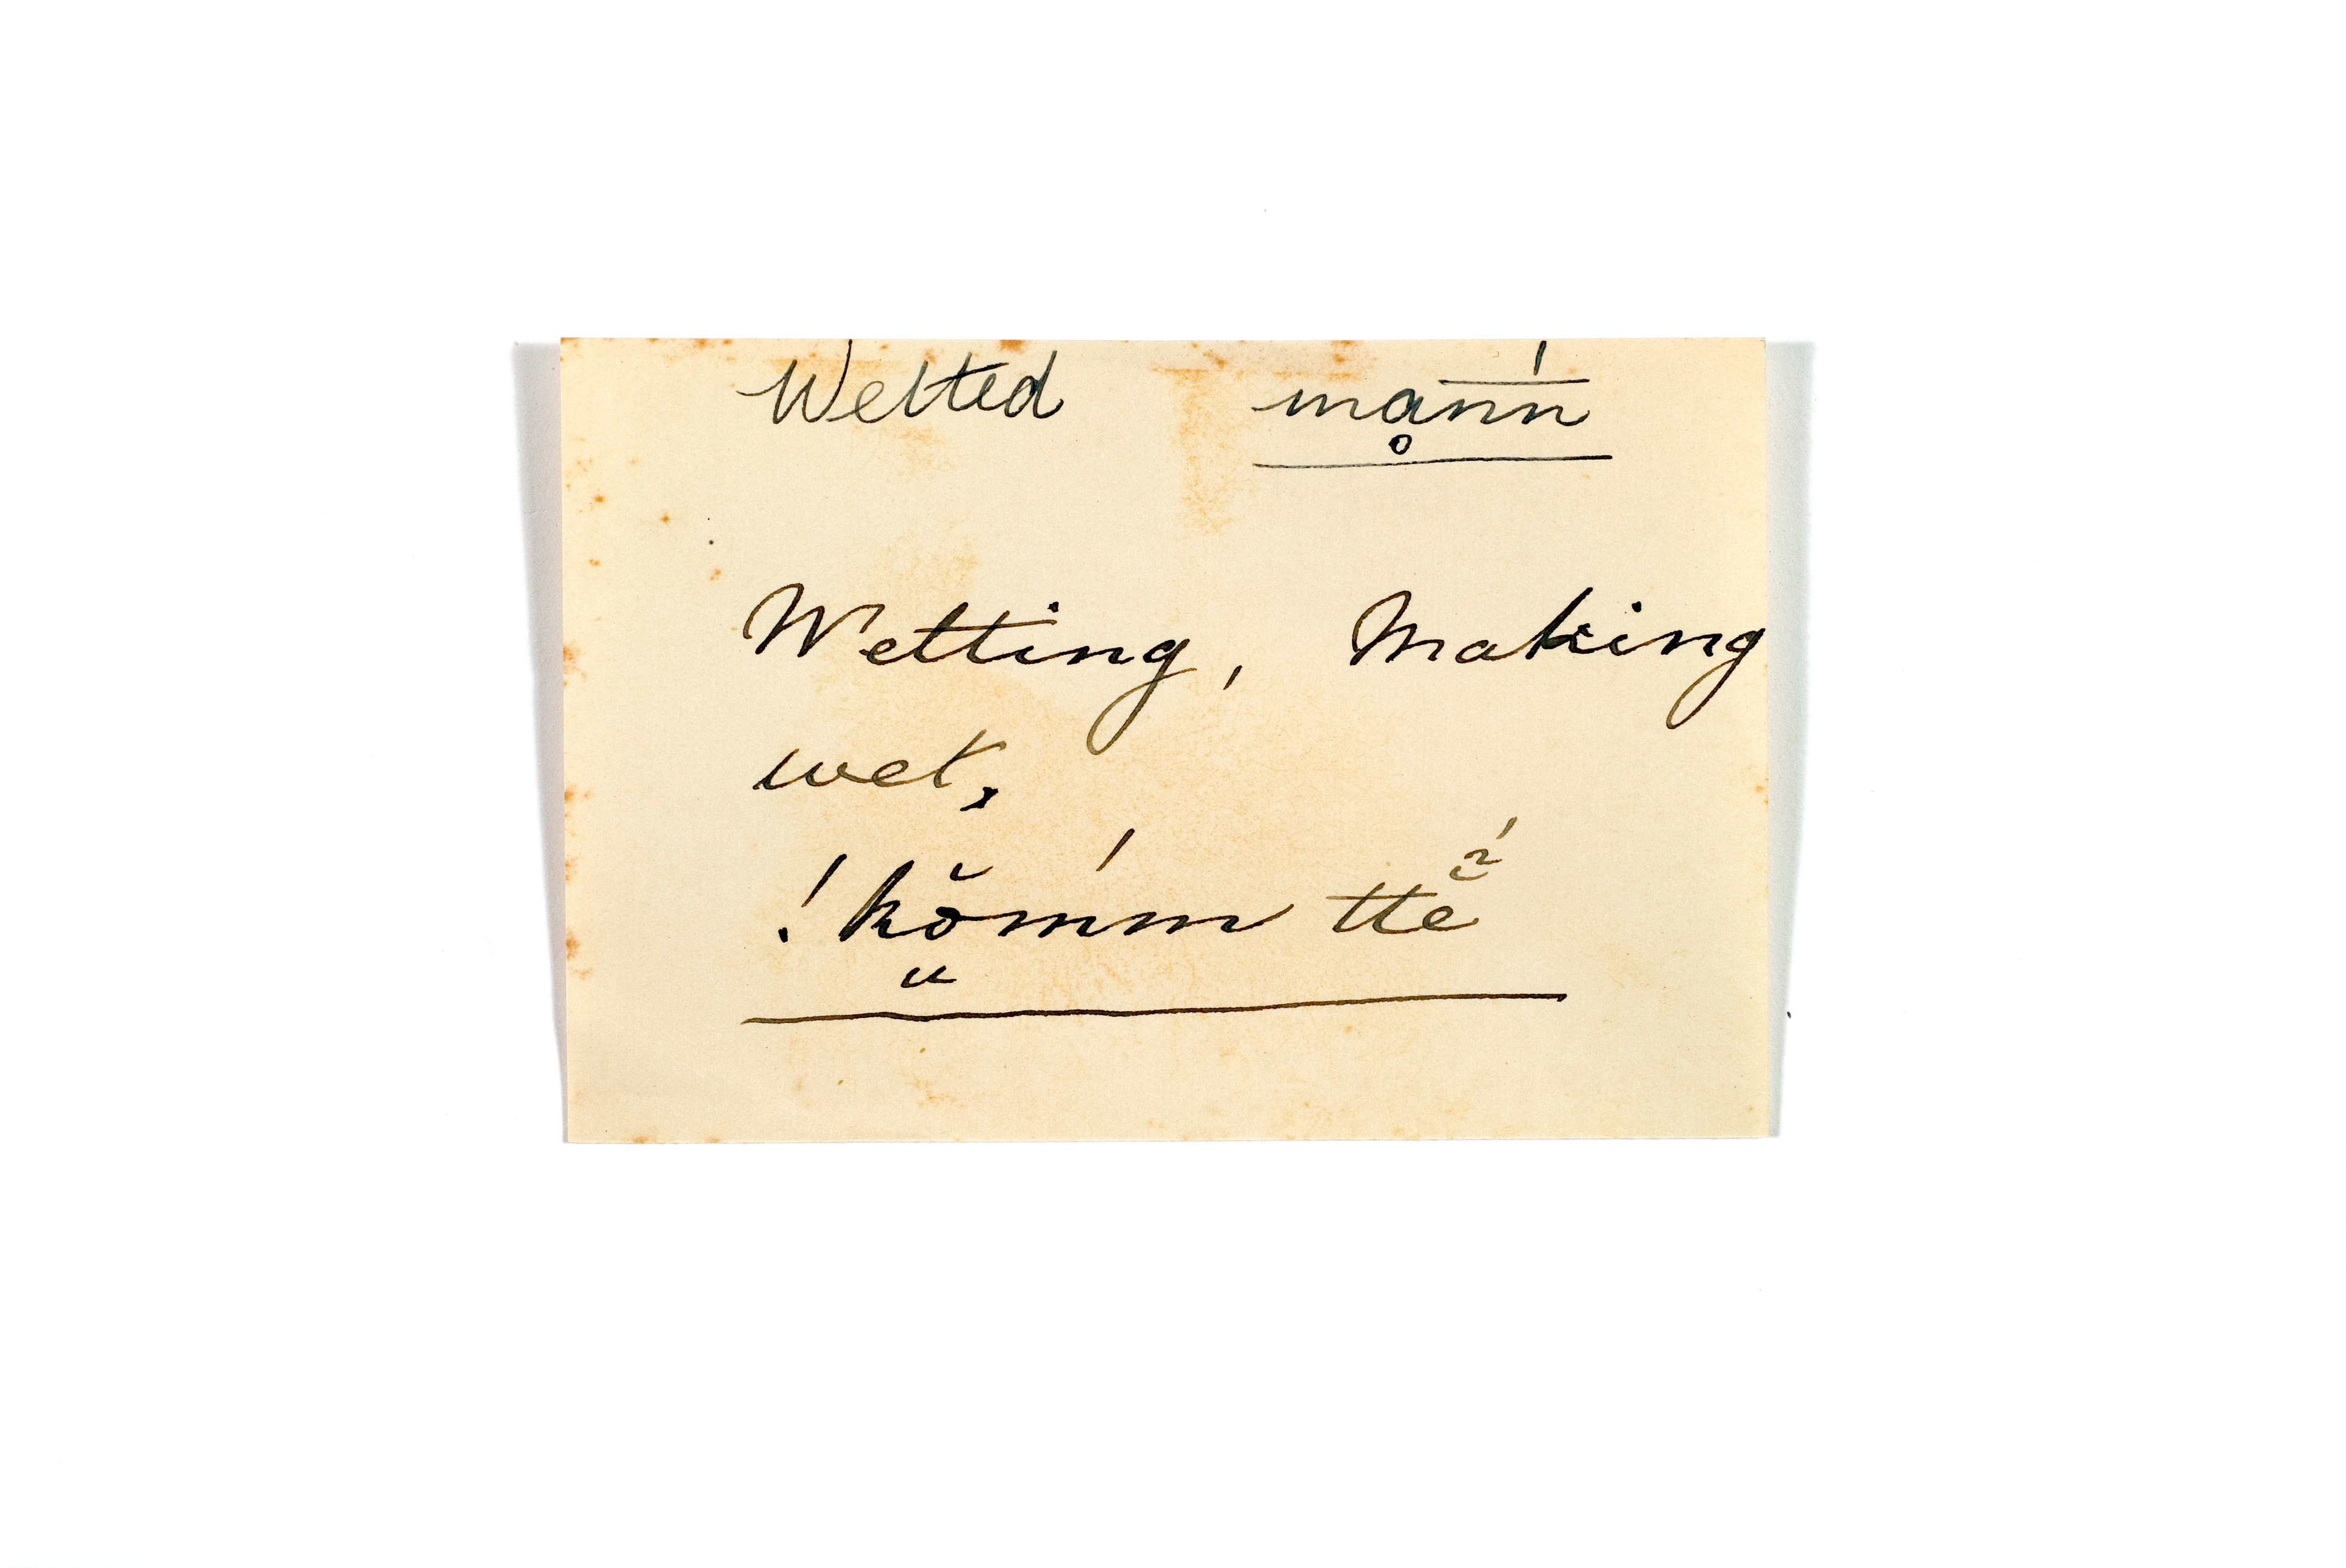 Wetted mḁn̅n̅́
Wetting, Making
wet,
!kŏ̤mḿ ttĕ̃́